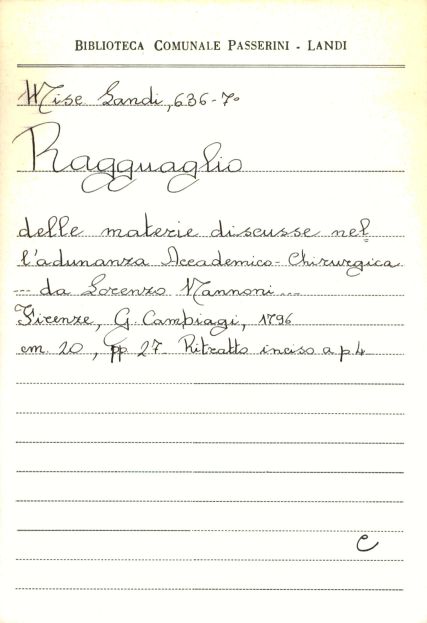 BIBLIOTECA COMUNALE PASSERINI - LANDI
Mise Landi, 636-7º
Ragguaglio
delle materie discusse nel
l'adunanza Accademico-Chirurgica
--- da Lorenzo Nannoni...
Firenze, G. Cambiagi, 1796
cm. 20, pp 27. Ritratto inciso a p 4
C